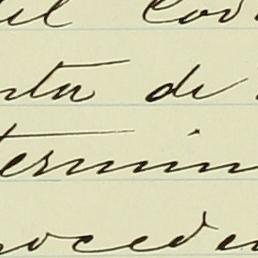 el Con
nta de
termin
roceden